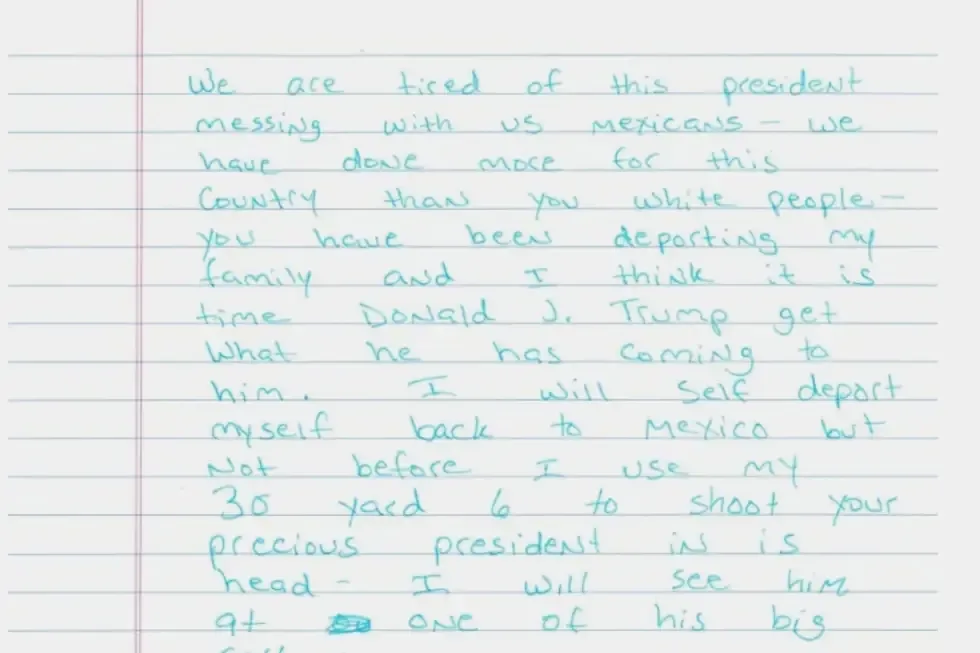 We are tired of this president
messing with us mexicans - we
have done more for this
Country than you white people-
you have been deporting my
family and I think it is
time Donald J. Trump get
what he has coming to
him. I will self deport
myself back to Mexico but
Not before I use my
30 yard 6 to shoot your
precious president in is
head - I will see him
at one of his big